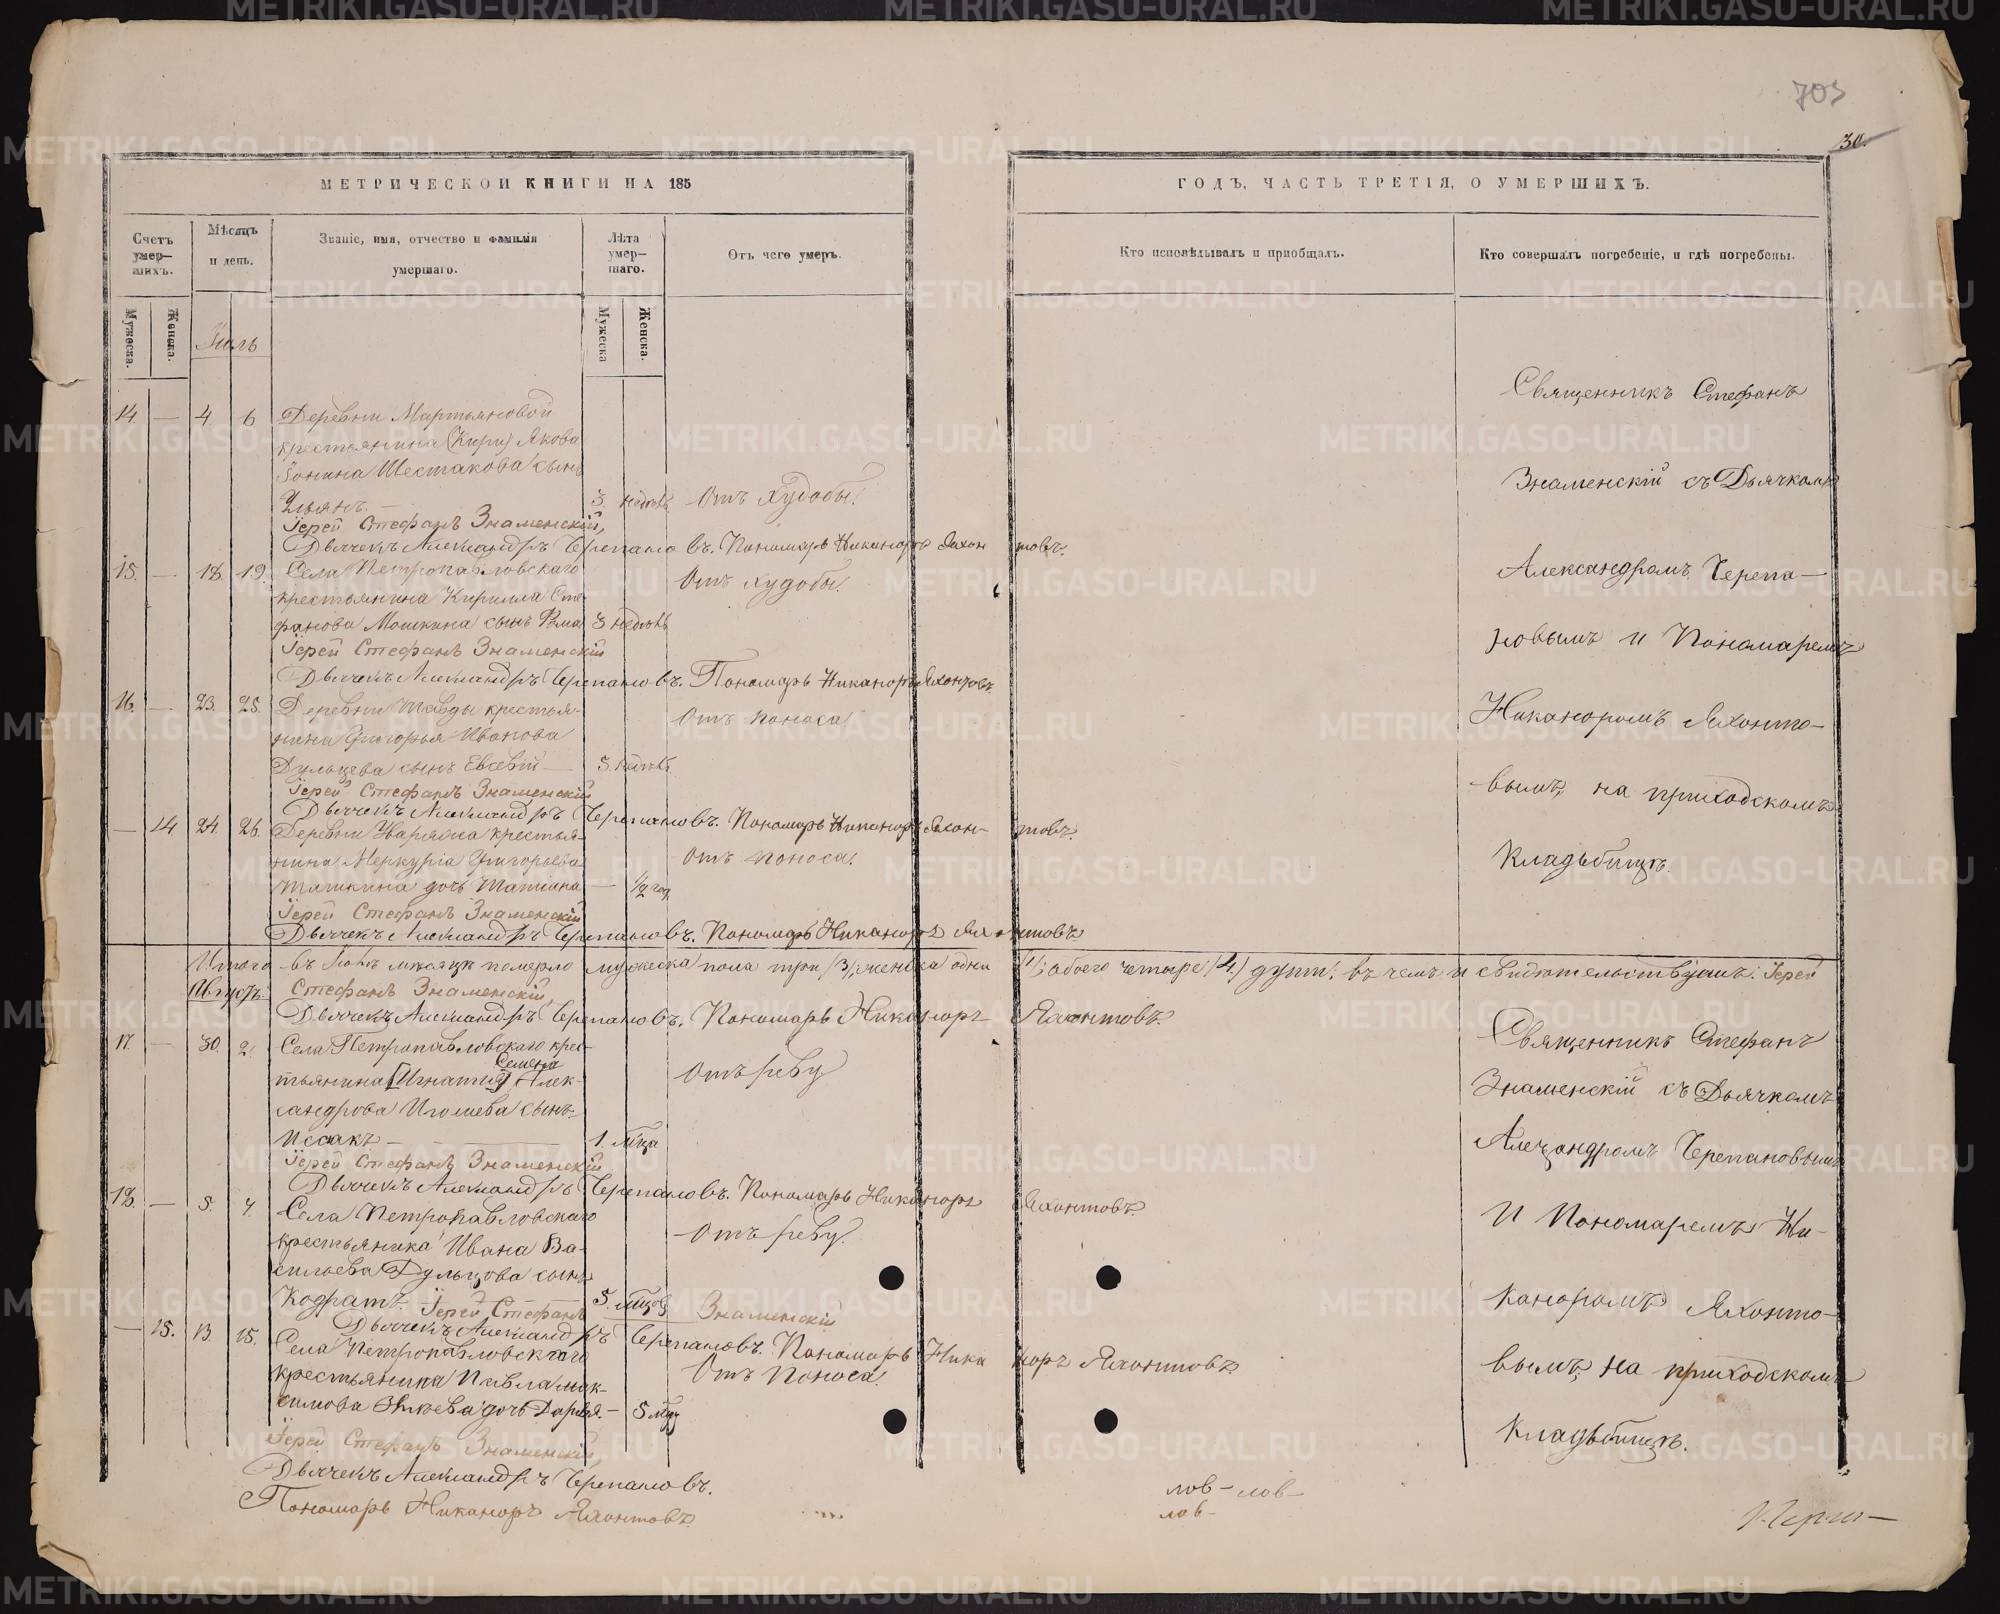 703
30.
МЕТРИЧЕСКОЙ КНИГИ НА 185
ГОДЪ, ЧАСТЬ ТРЕТІЯ, О УМЕРШИХЪ.
Счетъ умер—шихъ.
Мѣсяцъ и день.
Званіе, имя, отчество и фамилія умершаго.
Лѣта умер—шаго.
Отъ чего умеръ.
Кто исповѣдывалъ и приобщалъ.
Кто совершалъ погребеніе, и гдѣ погребены.
Мужеска.
Женска.
Мужеска
Женска.
Іюль
14. — 4 6 Деревни Мартьяновой
крестьянина (Кири) Якова
Іонина Шестакова сынъ
Ульянъ. — 3. недѣль Отъ худобы.
Іерей Стефанъ Знаменскій,
Дьячекъ Александръ Черепановъ. Пономарь Никаноръ Яхонтовъ.
15. — 18. 19. Села Петропавловскаго Отъ худобы.
крестьянина Кирилла Сте-
фанова Мошкина сынъ 3 недѣль
Іерей Стефанъ Знаменскій
Дьячекъ Александръ Черепановъ. Пономарь Никаноръ Яхонтовъ
16. — 23. 25. Деревни Тавды крестья- Отъ поноса
нина Григорья Иванова
Дульцева сынъ Евсевій — 3. недѣль
Іерей Стефанъ Знаменскій
Дьячекъ Александръ Черепановъ. Пономарь Никаноръ Яхонтовъ.
— 14 24 26. Деревни крестья-
нина Меркурія Григорьева Отъ поноса.
Тяшкина дочь Татіана — 1/2 год
Іерей Стефанъ Знаменскій
Дьячекъ Александръ Черепановъ. Пономарь Никаноръ Яхонтовъ
Итого въ Іюлѣ мѣсяцѣ померло мужеска пола три /3/, женска одна /1/; обоего четыре /4./ душъ; въ чемъ и свидѣтельствуемъ: Іерей
Августъ Стефанъ Знаменскій,
Дьячекъ Александръ Черепановъ. Пономарь Никаноръ Яхонтовъ.
17. — 30. 2. Села Петропавловскаго крес-
Семена
тьянина [Игнатія] Алек- Отъ реву
сандрова Иголиева сынъ
Иссакъ — 1. мѣца
Іерей Стефанъ Знаменскій
Дьячекъ Александръ Черепановъ. Пономарь Никаноръ Яхонтовъ.
18. — 5. 7. Села Петропавловскаго Отъ реву.
крестьянина Ивана Ва-
сильева Дульцова сынъ
Кодратъ. — 5. мѣцов
Іерей Стефанъ Знаменскій
Дьячекъ Александръ Черепановъ. Пономарь Никаноръ Яхонтовъ
— 15. 13 15. Села Петропавловскаго Отъ Поноса.
крестьянина Павла Мак-
симова дочь Дарья. — 5 мѣц
Іерей Стефанъ Знаменскій,
Дьячекъ Александръ Черепановъ.
Пономарь Никаноръ Яхонтовъ
Священникъ Стефанъ
Знаменскій съ Дьячкомъ
Александромъ Черепа—
новымъ и Пономаремъ
Никаноромъ Яхонто—
вымъ, на приходскомъ
Кладьбищѣ.
Священникъ Стефанъ
Знаменскій съ Дьячкомъ
Александромъ Черепановымъ
И Пономаремъ Ни-
каноромъ Яхонто-
вымъ, на приходскомъ
Кладьбищѣ.
лов- лов-
лов-
METRIKI.GASO-URAL.RU